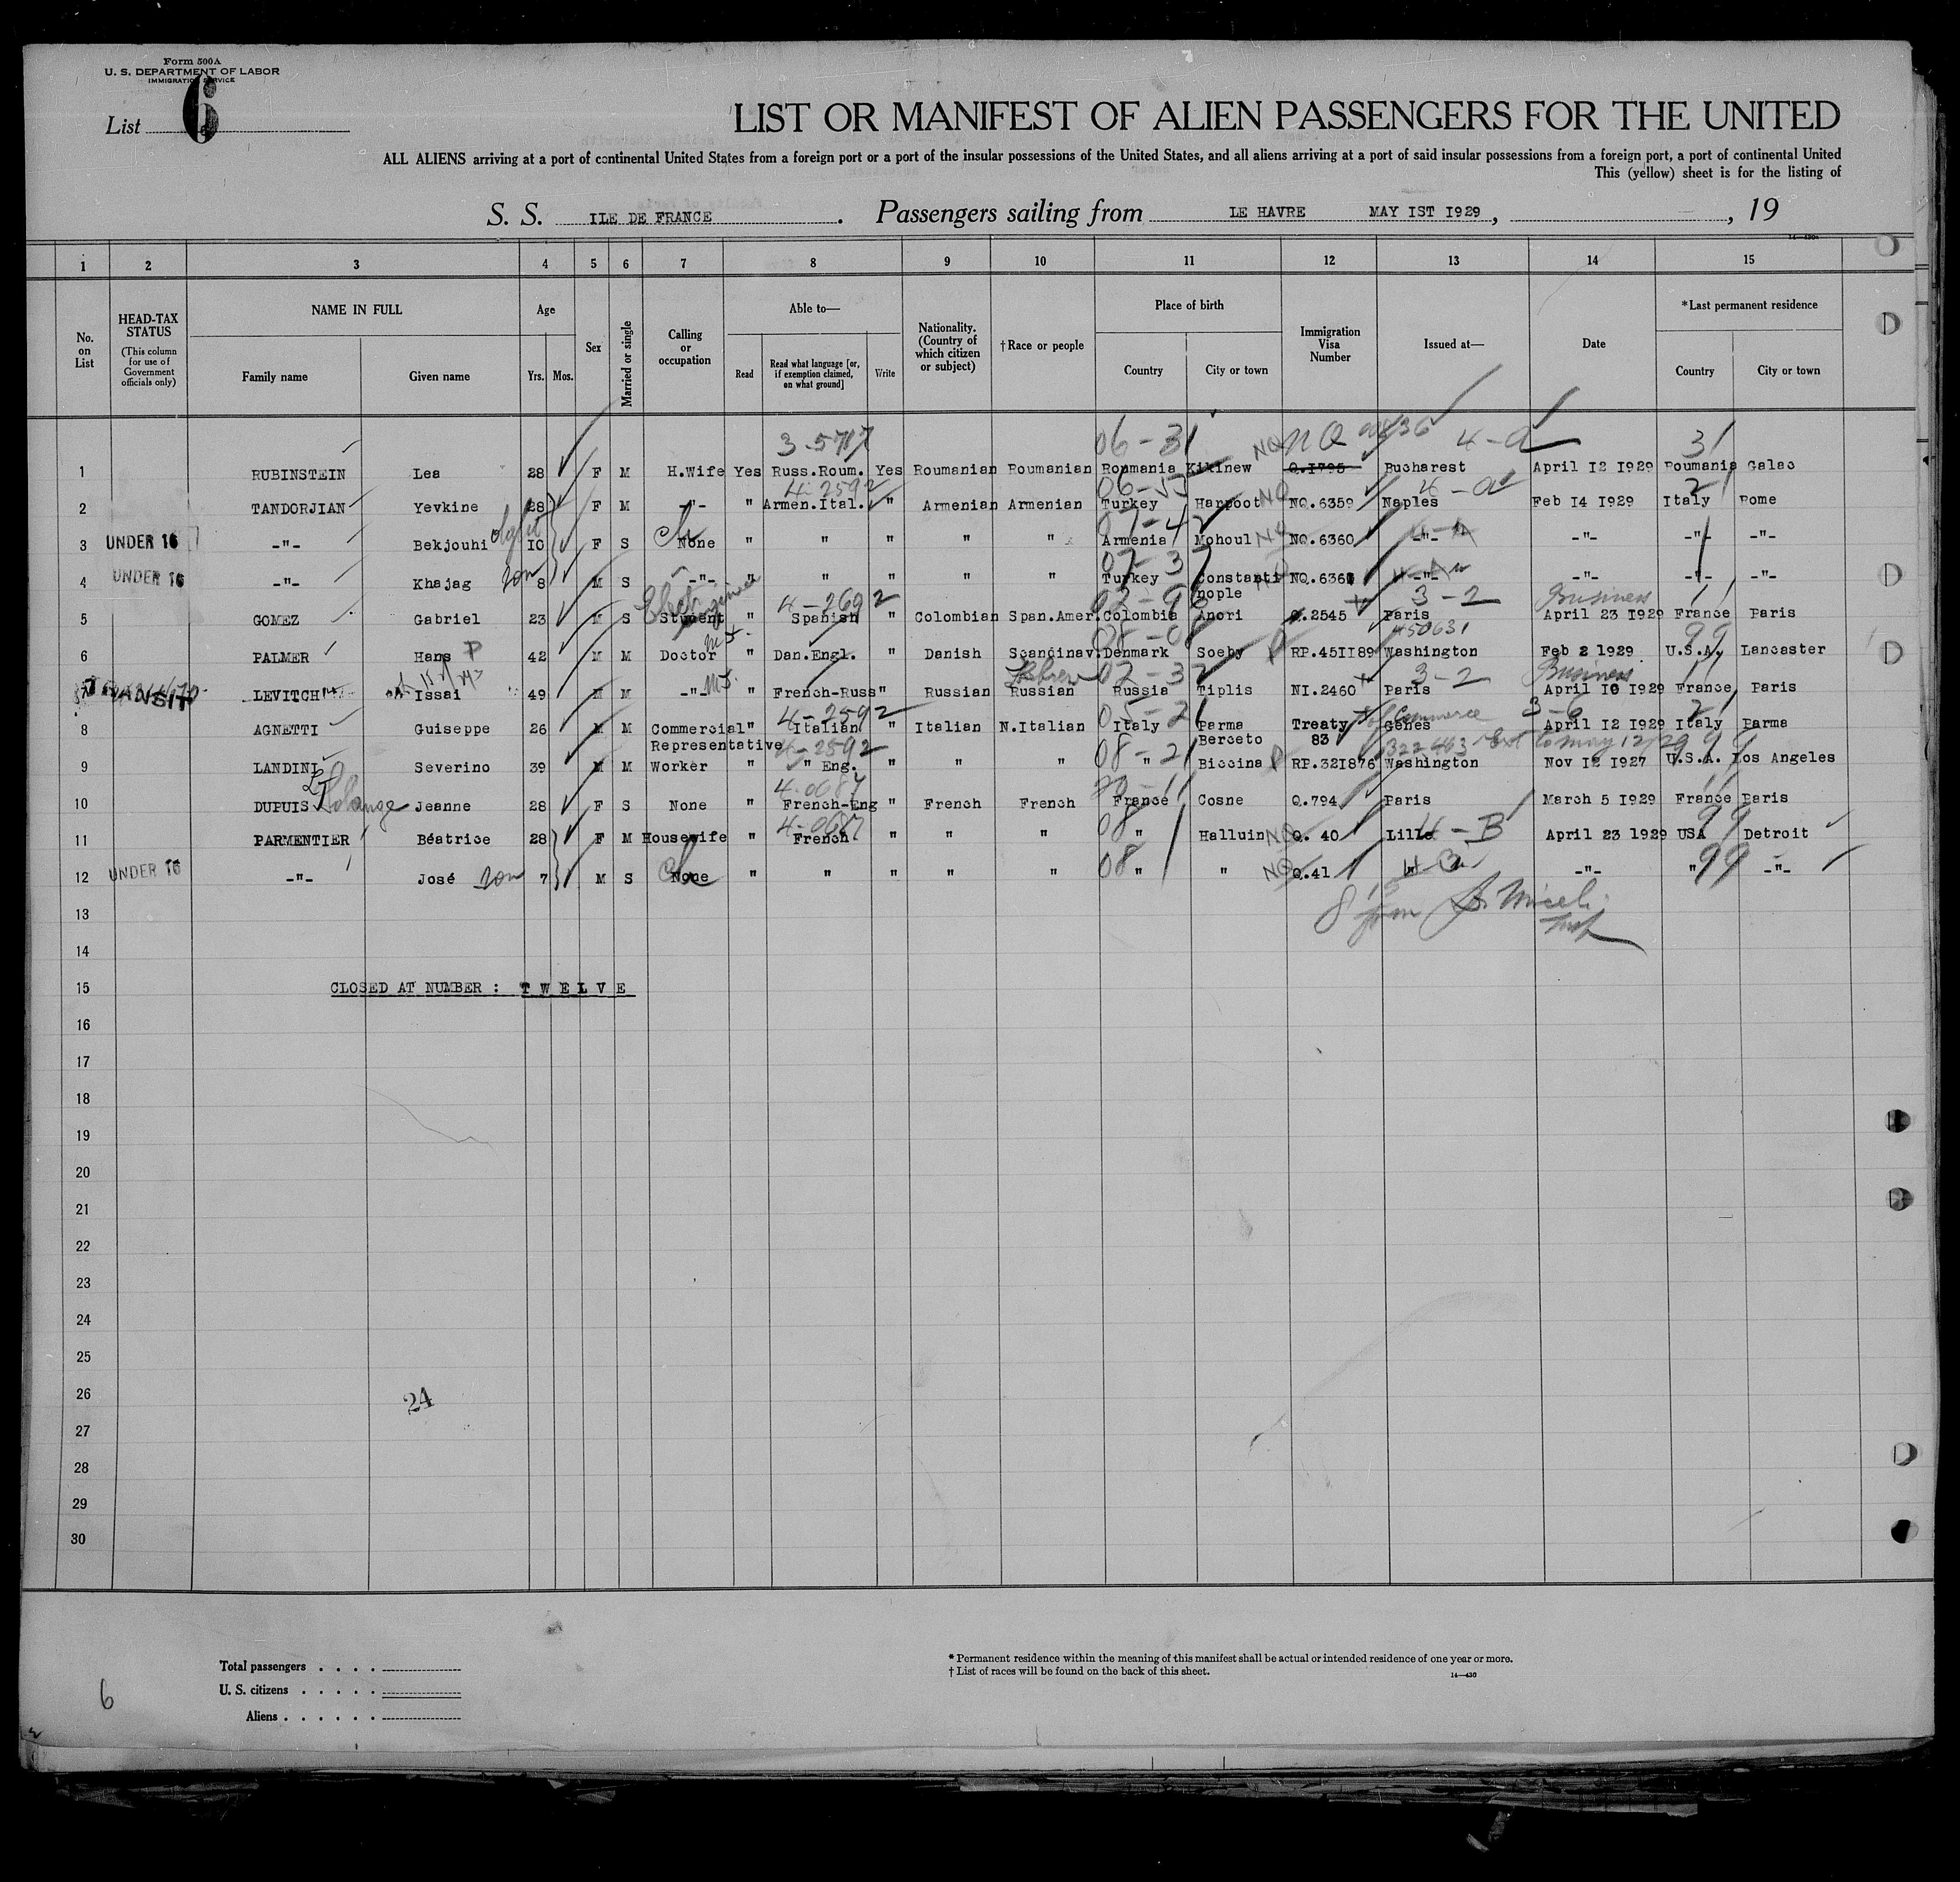 Form 500A
U. S. DEPARTMENT OF LABOR
IMMIGRATION SERVICE
List 6
LIST OR MANIFEST OF ALIEN PASSENGERS FOR THE UNITED
ALL ALIENS arriving at a port of continental United States from a foreign port or a port of the insular possessions of the United States, and all aliens arriving at a port of said insular possessions from a foreign port, a port of continental United
This (yellow) sheet is for the listing of
S. S. ILE DE FRANCE. Passengers sailing from LE HAVRE MAY 1ST 1929, , 19
1 2 3 4 5 6 7 8 9 10 11 12 13 14 15
No. on List
HEAD-TAX STATUS (This column for use of Government officials only)
NAME IN FULL Family name Given name
Age Yrs. Mos.
Sex
Married or single
Calling or occupation
Able to— Read Read what language [or, if exemption claimed, on what ground] Write
Nationality. (Country of which citizen or subject)
†Race or people
Place of birth Country City or town
Immigration Visa Number
Issued at—
Date
*Last permanent residence Country City or town
3-5717 06-31 NQ 4-a 31
1 RUBINSTEIN Lea 28 F M H.Wife Yes Russ.Roum. Yes Roumanian Roumanian Roumania Kikinew Q.1795 Bucharest April 12 1929 Roumania Galac
4-2592 06-53 NQ 4-a 21
2 TANDORJIAN Yevkine 28 F M -"- " Armen.Ital. " Armenian Armenian Turkey Harpoot NQ.6359 Naples Feb 14 1929 Italy Rome
07-42 NQ
3 UNDER 16 -"- Bekjouhi 10 F S None " " " " " Armenia Mohoul NQ.6360 -"- -"- -"- -"-
07-37
4 UNDER 16 -"- Khajag son 8 M S -"- " " " " " Turkey Constanti nople NQ.6361 -"- -"- -"- -"-
Elect. engineer 4-2692 3-2 Business
5 GOMEZ Gabriel 23 M S Student " Spanish " Colombian Span.Amer. Colombia Anori Q.2545 Paris April 23 1929 France Paris
450631 99
6 PALMER Hans P 42 M M Doctor " Dan.Engl. " Danish Scandinav. Denmark Soeby RP.451189 Washington Feb 2 1929 U.S.A. Lancaster
Hebrew 07-37 3-2 Business
7 TRANSIT LEVITCH Issai 49 M M -"- " French-Russ " Russian Russian Russia Tiplis NI.2460 Paris April 10 1929 France Paris
4-2592 05-21 of Commerce 3-6 21
8 AGNETTI Guiseppe 26 M M Commercial Representative " Italian " Italian N.Italian Italy Parma Berceto Treaty 83 Gênes April 12 1929 Italy Parma
4-2592 08-21 322463 Ext to May 12/29 99
9 LANDINI Severino 39 M M Worker " " Eng. " " " " Biccina RP.321876 Washington Nov 12 1927 U.S.A. Los Angeles
4-0687
10 DUPUIS Solange Jeanne 28 F S None " French-Eng " French French France Cosne Q.794 Paris March 5 1929 France Paris
4-0687 08 NQ 4-B 99
11 PARMENTIER Béatrice 28 F M Housewife " French " " " " Halluin Q. 40 Lille April 23 1929 USA Detroit
08 NQ 99
12 UNDER 16 -"- José son 7 M S None " " " " " " " Q.41 " -"- " -"-
13
14
15 CLOSED AT NUMBER : T W E L V E
16
17
18
19
20
21
22
23
24
25
26
24
27
28
29
30
Total passengers
U. S. citizens
Aliens
* Permanent residence within the meaning of this manifest shall be actual or intended residence of one year or more.
† List of races will be found on the back of this sheet.
14—430
6